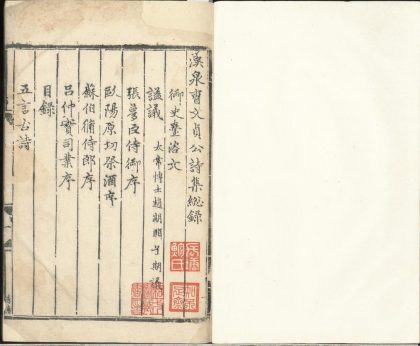 漢泉曹文貞公詩集總錄
御史臺咨文
謚議 太常博士趙期頤子期議
張夢臣侍御序
歐陽原功祭酒序
蘇伯脩侍郎序
呂仲實司業序
目錄
五言古詩